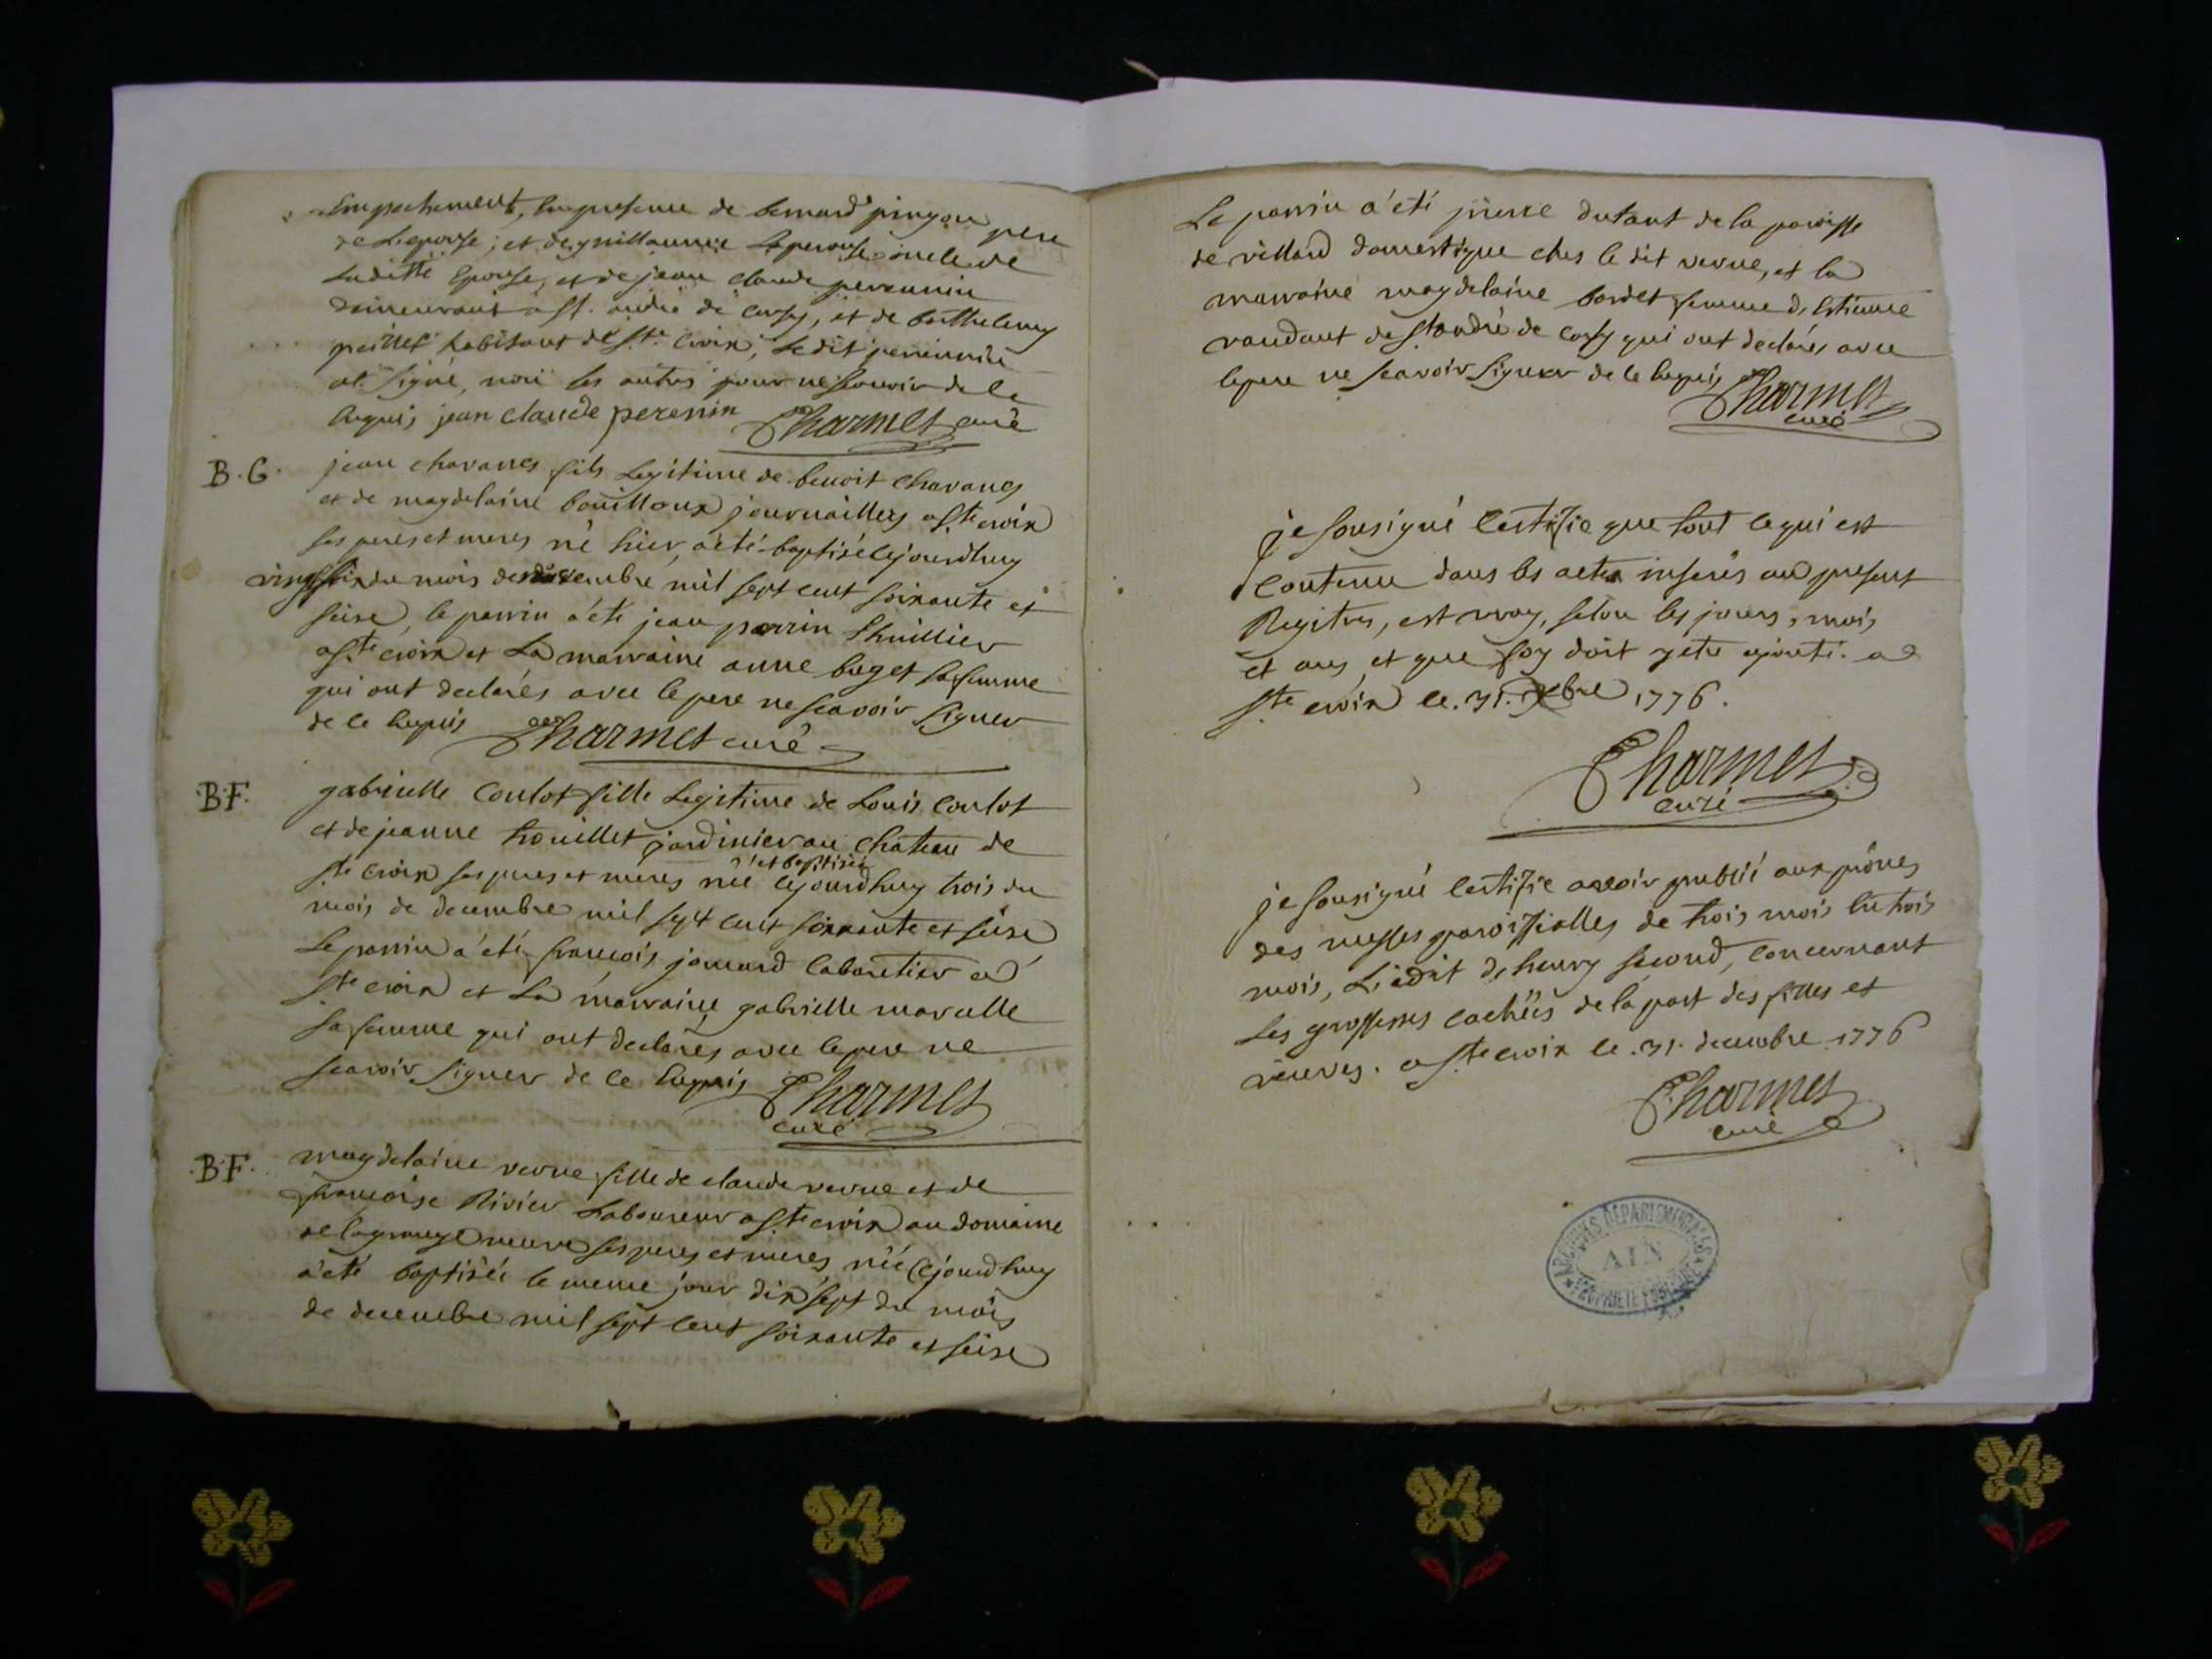 Empechement, En presence de bernard pingon pere
de L'epouse, et de guillaume Laperouse oncle de
Laditte Epouse, et de jean claude perounin
demeurant a st. andré de corsy, et de barthelemy
peillet habitant de ste. Croix, Ledit perounin
at signé, non les autres pour ne scavoir de ce
Requis jean claude perenin Charmet curé
B. G. jean chavanes fils Legitime de benoit Chavanes
et de magdelaine bouilloux journaillers a ste croix
ses peres et meres né hier, a'eté baptisé cejourdhuy
vingt six du mois de novembre mil sept cent soixante et
seise, le parrin a'eté jean parrin thuillier
a ste croix et La marraine anne buget sa femme
qui ont declarés avec le pere ne scavoir signer
de ce Requis Charmet curé
B.F. gabrielle Coulot fille Legitime de Louis Coulot
et de jeanne trouillet jardinier au Chateau de
et baptisée
ste Croix ses peres et meres née cejourdhuy trois du
mois de decembre mil sept cent soixante et seise
Le parrin a'eté francois jomard laboretier a
ste croix et La marraine gabrielle maralle
sa femme qui ont declarés avec le pere ne
scavoir signer de ce Requis Charmet
curé
B.F. magdelaine verne fille de claude verne et de
francoise Rivier Laboureur a ste croix au domaine
de la grange neuve ses peres et meres née cejourdhuy
a'eté baptisée le meme jour dix sept du mois
de decembre mil sept cent soixante et seise
Le parrin a'eté pierre dutant de la paroisse
de villard domestique ches le dit verne, et la
marraine magdelaine bardet femme d'Estienne
vaudant de st andré de corsy qui ont declarés avec
le pere ne scavoir signer de ce Requis Charmet
curé
je sousigné Certifie que tout ce qui est
Contenu dans les actes inserés au present
Registres, est vray, selon les jours, mois,
et ans, et que foy doit y etre ajouté. a
ste croix le. 31. Xbre 1776.
Charmet
curé
je sousigné Certifie avoir publié aux prônes
des messes paroissialles de trois mois En trois
mois, L'édit de henry second, Concernant
Les grossesses cachées de la part des filles et
veuves. a ste croix le. 31. decembre 1776
Charmet
curé
ARCHIVES DEPARTEMENTALES
AIN
PROPRIETE PUBLIQUE